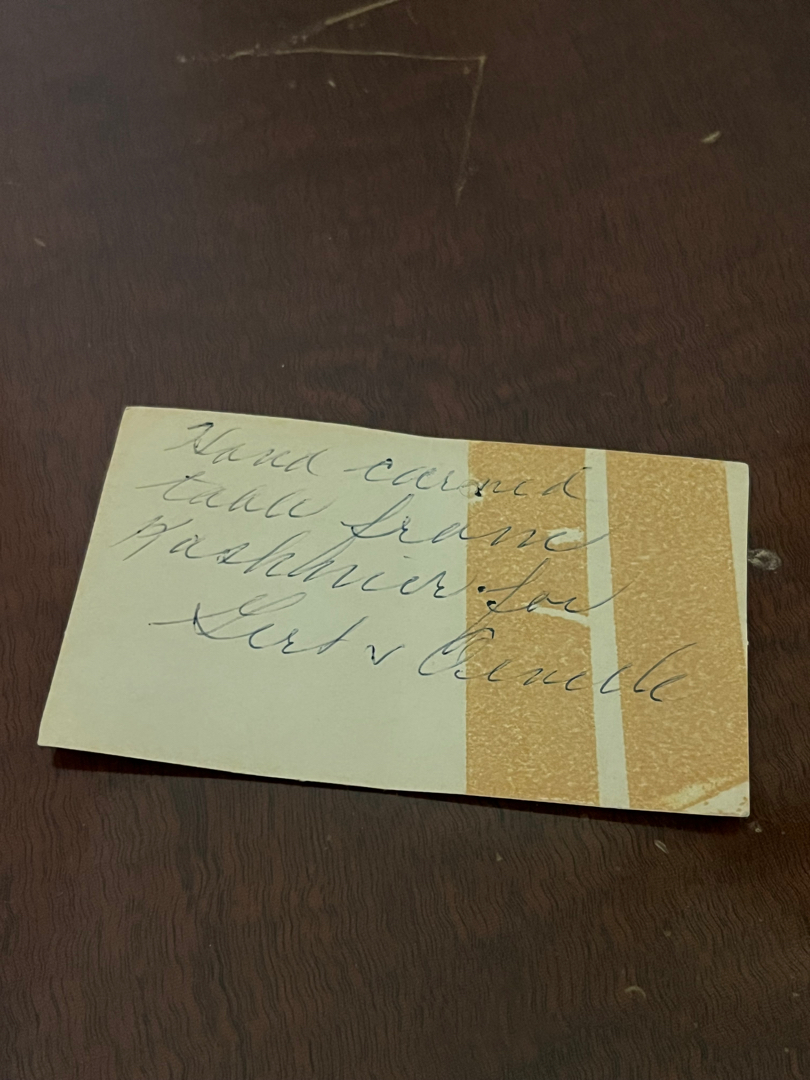 Hand carved
table from
Kashmier for
Gert &